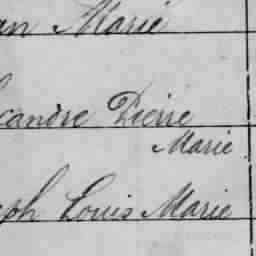 an Marie
candre Pierre
Marie
eph Louis Marie